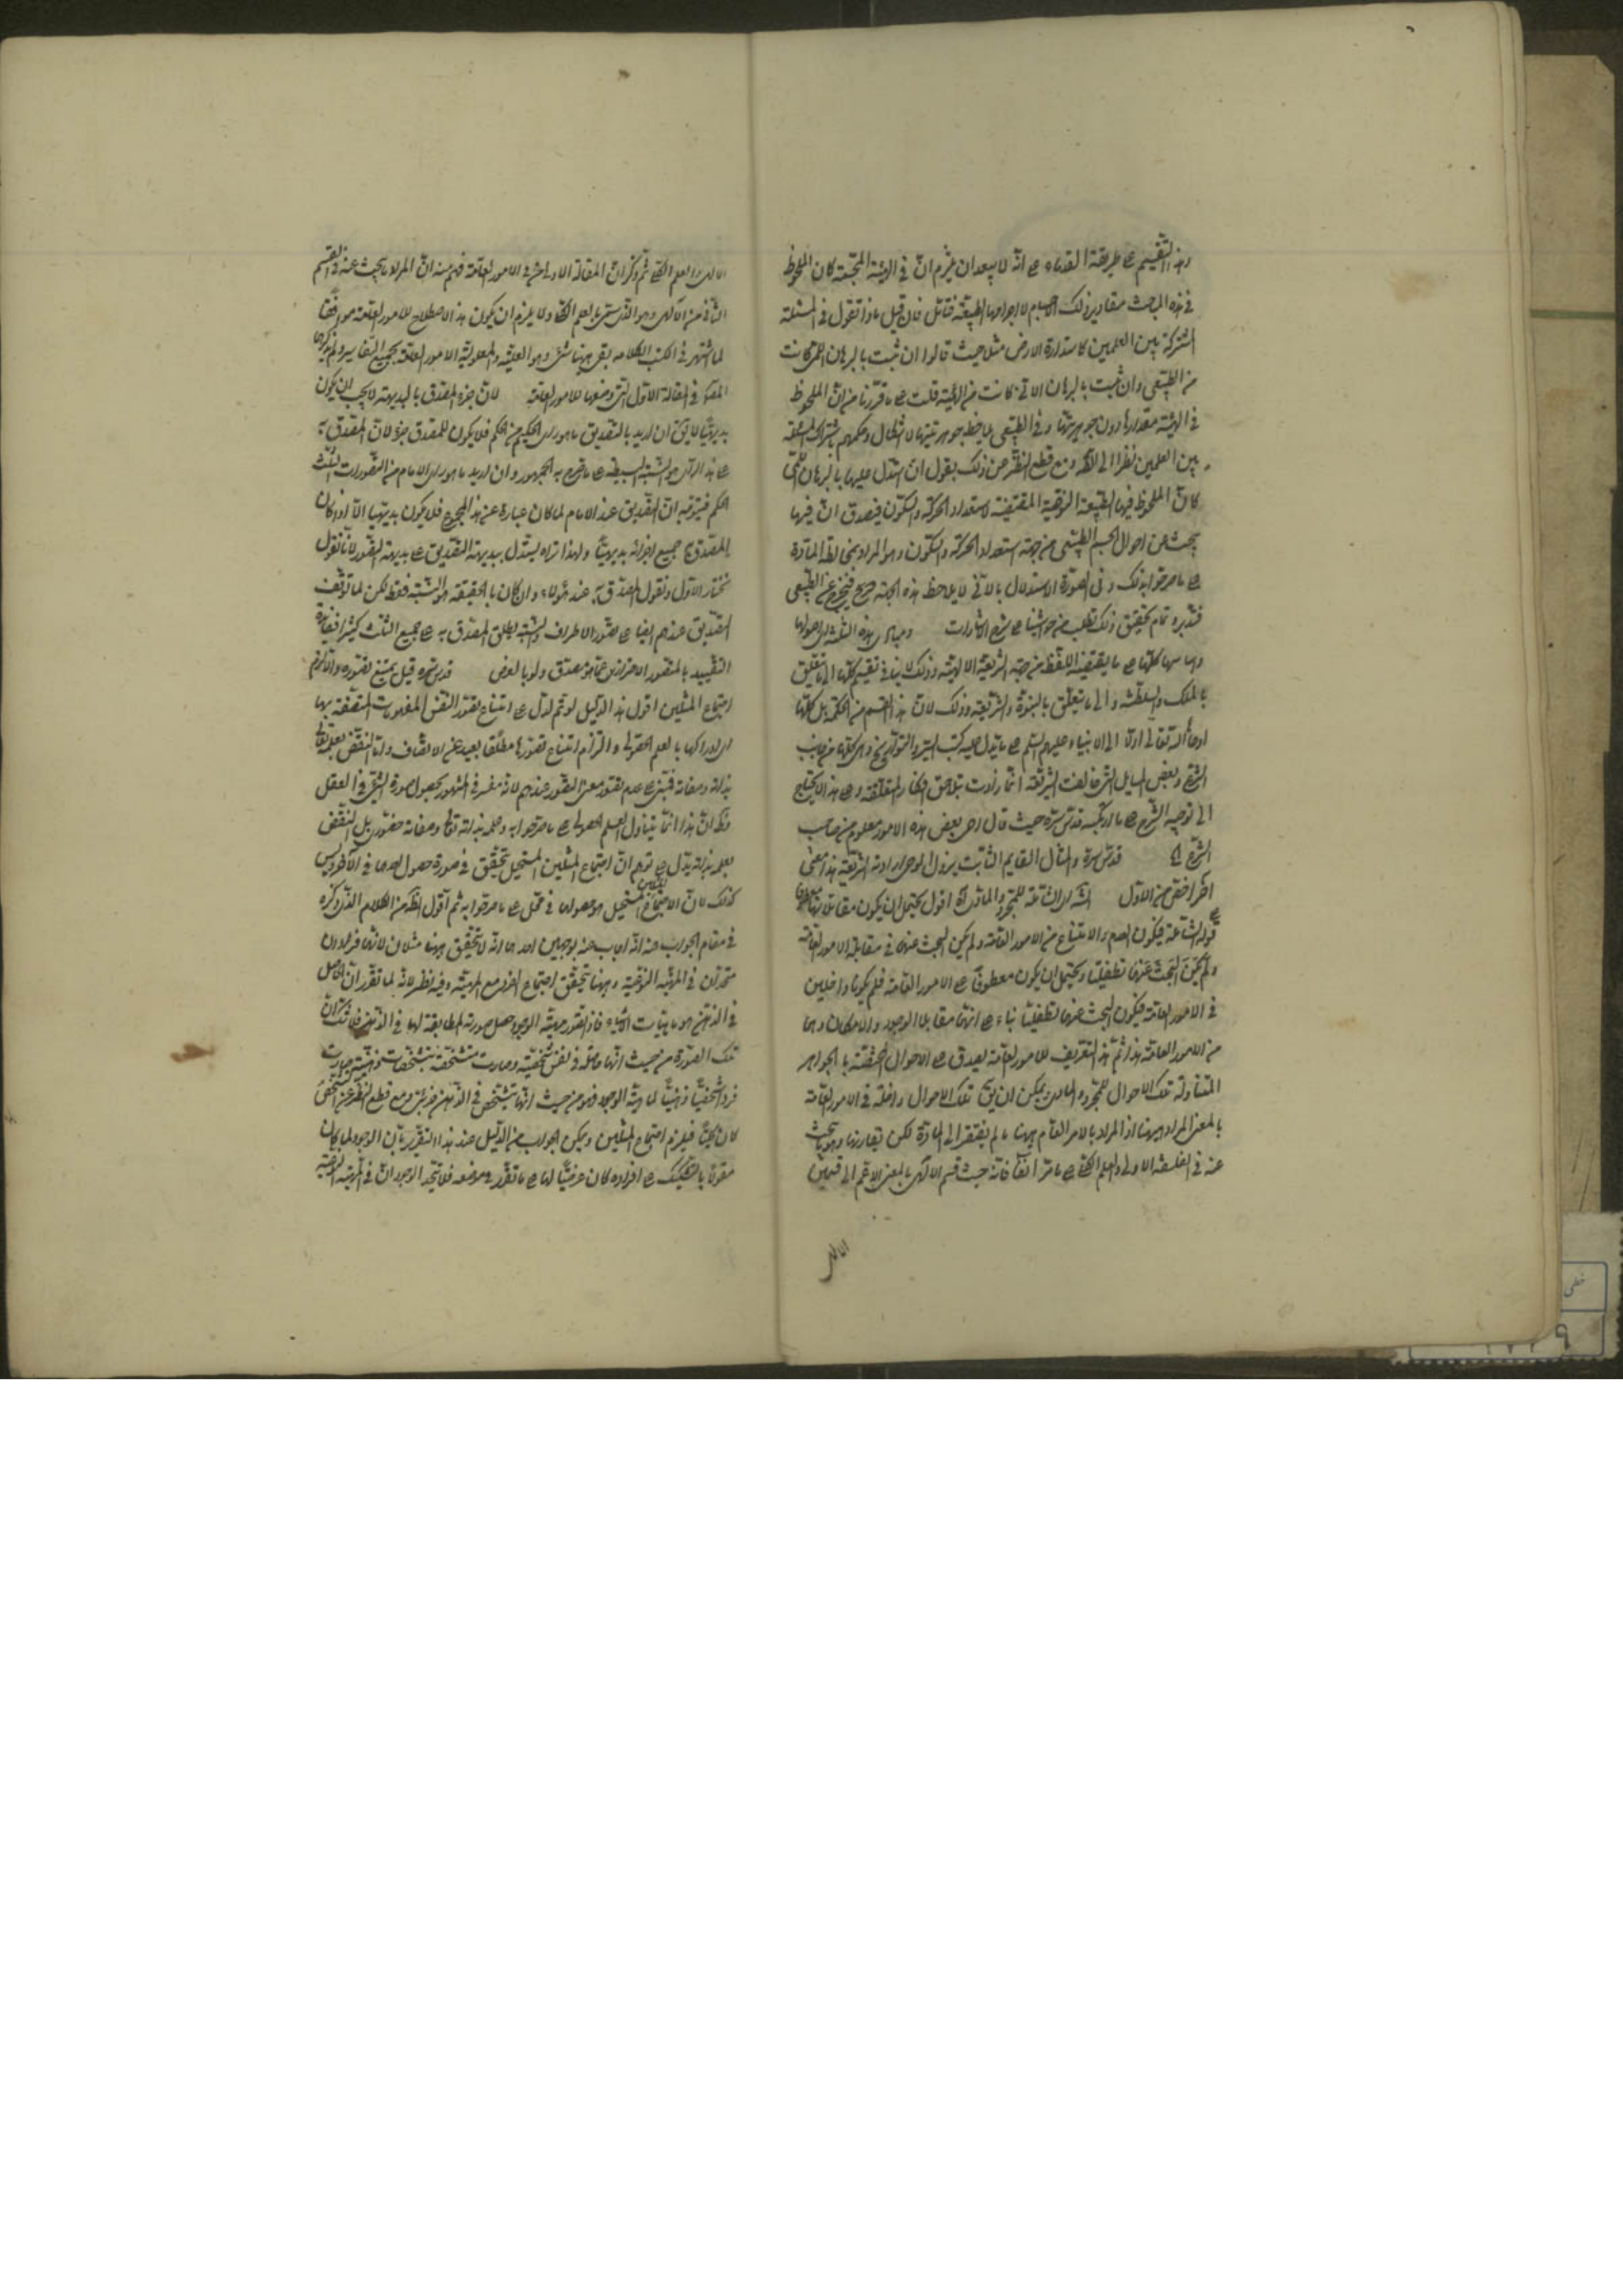 وهذا التقسيم على طريقة القدماء على انه لا يبعد ان يلتزم ان في الهيئة المجسمة كان الملحوظ
في هذه المباحث مقادير تلك الاجسام لا اجرامها الطبيعية فتأمل فان قيل ماذا تقول في المسئلة
المشتركة بين العلمين كاستدارة الارض مثلا حيث قالوا ان ثبت بالبرهان اللمي كانت
من الطبيعي وان ثبت بالبرهان الاني كانت من الهيئة قلت على ما قررنا من ان الملحوظ
في الهيئة مقدارها دون جوهريتها وفي الطبيعي يلاحظ جوهريتها لا اشكال وحكمهم باشتراك المسئلة
بين العلمين نظرا الى الآلة ومع قطع النظر عن ذلك يقول ان استدل عليها بالبرهان اللمي
كان الملحوظ فيها الطبيعة النوعية المقتضية لاستعداد الحركة والسكون فيصدق ان فيها
يبحث عن احوال الجسم الطبيعي من جهة استعداد الحركة والسكون وهو المراد بمخالطة المادة
على ما صرحوا بذلك وفي الصورة الاستدلال بالاني لا يلاحظ هذه الجهة صريح فيخرج عن الطبيعي
فتدبر وتمام تحقيق ذلك تطلب من حواشينا على شرح الاشارات ومبادى هذه الثلثة اى اصولها
وما سها كلها على ما يقتضيه اللفظ من جهة الشريعة الالهية وذلك لا ينافي تقسيم كلها الى ما يتعلق
بالملك والسلطنة والى ما يتعلق بالنبوة والشريعة وذلك لان هذا القسم من الحكمة بل كلها
اوحاه الله تعالى اولا الى الانبياء عليهم السلم على ما يدل عليه كتب السير والتواريخ وهى كلها من جانب
الشرع وبعض المسايل التى خالفت الشريعة انما زادت بتلاحق افكار المتعلقة وعلى هذا لا يحتاج
الى توجيه الشرح على ما ارتكبه قدس سره حيث قال اى بعض هذه الامور معلوم من صاحب
الشرع قدس سره والمثال القايم الثابت بنزول الوحى ارادته الشريعة هذا معنى
آخر اخص من الاول الشاملة للمجرد والمادى اه اقول يحتمل ان يكون مقابلاتها معطوفا
على قوله الشاملة فيكون العدم والامتناع من الامور العامة ولم يكن البحث عنهما في مقابلة الامور العامة
ولم يكن البحث عنهما تطفليا ويحتمل ان يكون معطوفا على الامور العامة فلم يكونا داخلين
في الامور العامة فيكون البحث عنهما تطفليا بناء على انهما مقابلا الوجود والامكان وهما
من الامور العامة هذا ثم هذا التعريف للامور العامة يصدق على الاحوال المختصة بالجواهر
المتناولة تلك الاحوال للمجرد والمادى ويمكن ان يق تلك الاحوال داخلة في الامور العامة
بالمعنى المراد ههنا اذ المراد بالامر العام ههنا ما لم يفتقر الى المادة لكن تقارنها وهو يبحث
عنه في الفلسفة الاولى والعلم الكلى على ما مر آنفا فانه حيث قسم الآلهى بالمعنى الاعم الى قسمين
الالهى
الالهى والعلم الكلى ثم ذكر ان المقالة الاولى اخرى في الامور العامة فهم منه ان المراد ما يبحث عنه في القسم
الثاني من الآلهى وهو الذى سمى بالعلم الكلى ولا يلزم ان يكون هذا الاصطلاح للامور العامة موافقا
لما اشتهر في الكتب الكلامية بقى ههنا شئ وهو العلية والمعلولية الامور العامة بجميع التفاسير ولم يذكرهما
المص في المقالة الاولى التى وضعها للامور العامة لان جزء المصدق بالبديهة لا يجب ان يكون
بديهيا لا يق ان اريد بالتصديق ما هو راى الحكيم من الحكم فلا يكون للمصدق جزء لان المصدق به
على هذا الراى هو النسبة البسيطة على ما صرح به الجمهور وان اريد ما هو راى الامام من التصورات الثلث
والحكم فيتوجه ان التصديق عند الامام لما كان عبارة عن هذا المجموع فلا يكون بديهيا الا اذا كان
المصدق به جميع اجزائه بديهيا ولهذا تراه يستدل ببديهة التصديق على بديهة التصور لانا نقول
نختار الاول ونقول المصدق به عند هؤلاء وان كان بالحقيقة هو النسبة فقط لكن لما توقف
التصديق عندهم ايضا على تصور الاطراف والنسبة يطلق المصدق به على جميع الثلث كثيرا فيفائدة
التقييد بالمتصور الاحتراز عن ما هو مصدق ولو بالعرض قدس سره قيل يمتنع تصوره والا لزم
اجتماع المثلين اقول هذا الدليل لو تم لدل على امتناع تصور النفس المفهومات المتصفة بها
اى ادراكها بالعلم الحصولى والتزام امتناع تصورها مطلقا بعيد عن الانصاف واما النقض بعلمه تعالى
بذاته وصفاته فمبنى على عدم تصور معنى التصور عندهم لانه مفسر في المشهور بحصول صورة الشئ في العقل
وظ ان هذا انما يتناول العلم الحصولى على ما صرحوا به وعلمه بذاته تعالى وصفاته حضورى بل النقض
بعلمه بذاته يدل على توهم ان اجتماع المثلين المستحيل يتحقق في صورة حصول احدهما في الآخر وليس
كذلك لان الاجتماع المستحيل هو حصولهما في محل على ما صرحوا به ثم اقول الظ من الكلام الذى ذكره
في مقام الجواب عنه انه اجاب عنه بوجهين احدهما انه لا يتحقق ههنا مثلان لانهما فردان
متحدان في المهية النوعية وههنا يتحقق اجتماع الفرد مع المهية وفيه نظر لانه لما تقرر ان الحاصل
في الذهن هو ماهيات الاشياء فاذا تصور مهية الوجود حصل صورته المطابقة لها في الذهن فلا شك ان
تلك الصورة من حيث انها حاصلة في نفس شخصية وصارت متشخصة بتشخصات ذهنية صارت
فردا شخصيا ذهنيا لماهية الوجود فهو من حيث انها يتشخص في الذهن جزئى ومع قطع النظر عن التشخص
كان كليا فيلزم اجتماع المثلين ويمكن الجواب من الدليل عند هذا التقرير بان الوجود لما كان
مقولا بالتشكيك على افراده كان عرضيا لها على ما تقرر في موضعه فلا يتحد الوجودان في المهية النوعية